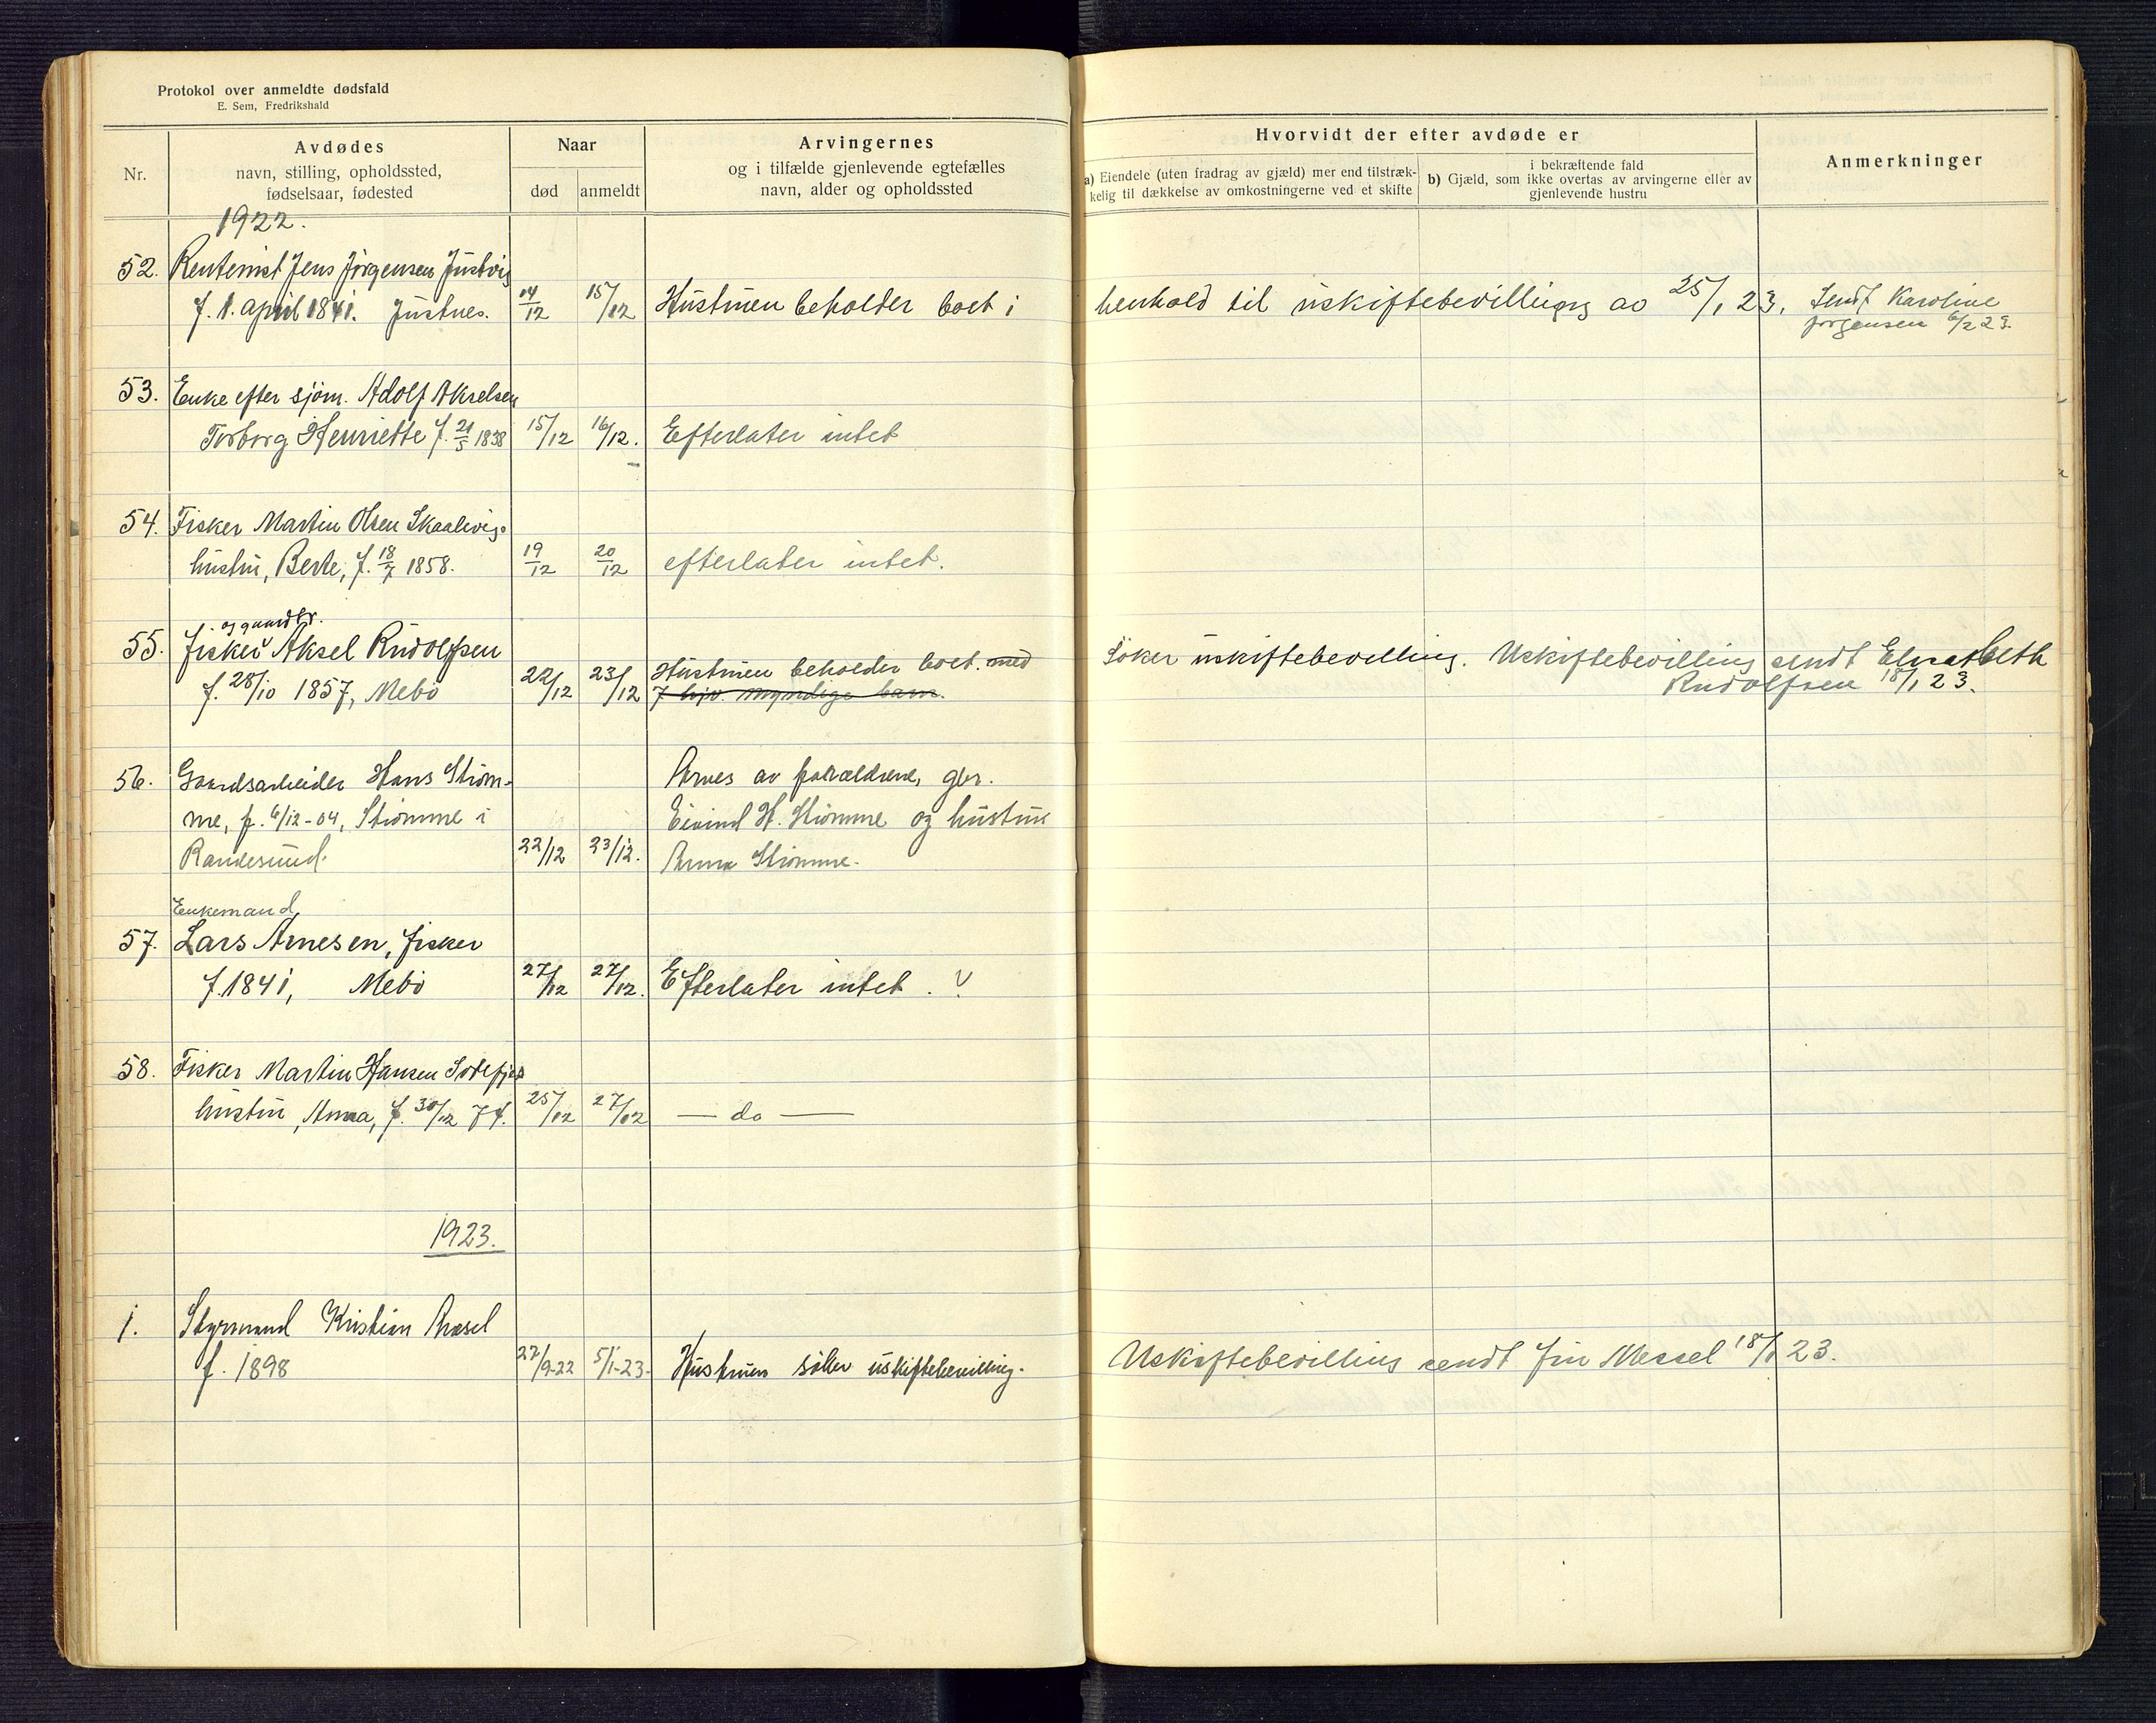 Protokol over anmeldte dødsfald
E. Sem, Fredrikshald
Nr.
Avdødes
navn, stilling, opholdssted,
fødselsaar, fødested
Naar
død
anmeldt
Arvingernes
og i tilfælde gjenlevende egtefælles
navn, alder og opholdssted
Hvorvidt der efter avdøde er
a) Eiendele (uten fradrag av gjæld) mer end tilstræk-
kelig til dækkelse av omkostningerne ved et skifte
i bekræftende fald
b) Gjæld, som ikke overtas av arvingerne eller av
gjenlevende hustru
Anmerkninger
1922.
52. Rentenist Jens Jørgensen Justvig
f. 1. april 1841. Justnes. 14/12 15/12 Hustruen beholder boet i henhold til uskiftebevilling av 25/1 23. Sendt Karoline
Jørgensen 6/2 23.
53. Enke efter sjøm. Adolf Akselsen
Torborg Henriette f. 21/5 1838 15/12 16/12. Efterlater intet
54. Fisker Martin Olsen Skaalevigs
hustru, Berte, f. 18/7 1858. 19/12 20/12 efterlater intet.
og gaardbr.
55. Fisker Aksel Rudolfsen
f. 28/10 1857, Mebø 22/12 23/12 Hustruen beholder boet. med
7 hjv. myndige barn.
Søker uskiftebevilling. Uskiftebevilling sendt Elisabeth
Rudolfsen 18/1 23.
56. Gaardsarbeider Hans Strøm- Arves av forældrene, gbr.
me, f. 6/12-04, Strømme i Eivind H. Strømme og hustru
Randesund. 22/12 23/12. Anna Strømme.
Enkemand
57. Lars Arnesen, fisker
f. 1841, Mebø 27/12 27/12. Efterlater intet.
58. Fisker Martin Hansen
hustru, Anna, f. 30/12 74. 25/12 27/12 — do —
1923.
1. Styrmand Kristian
f. 1898 27/9-22 5/1-23. Hustruen søker uskiftebevilling. Uskiftebevilling sendt fru Messel 18/1 23.